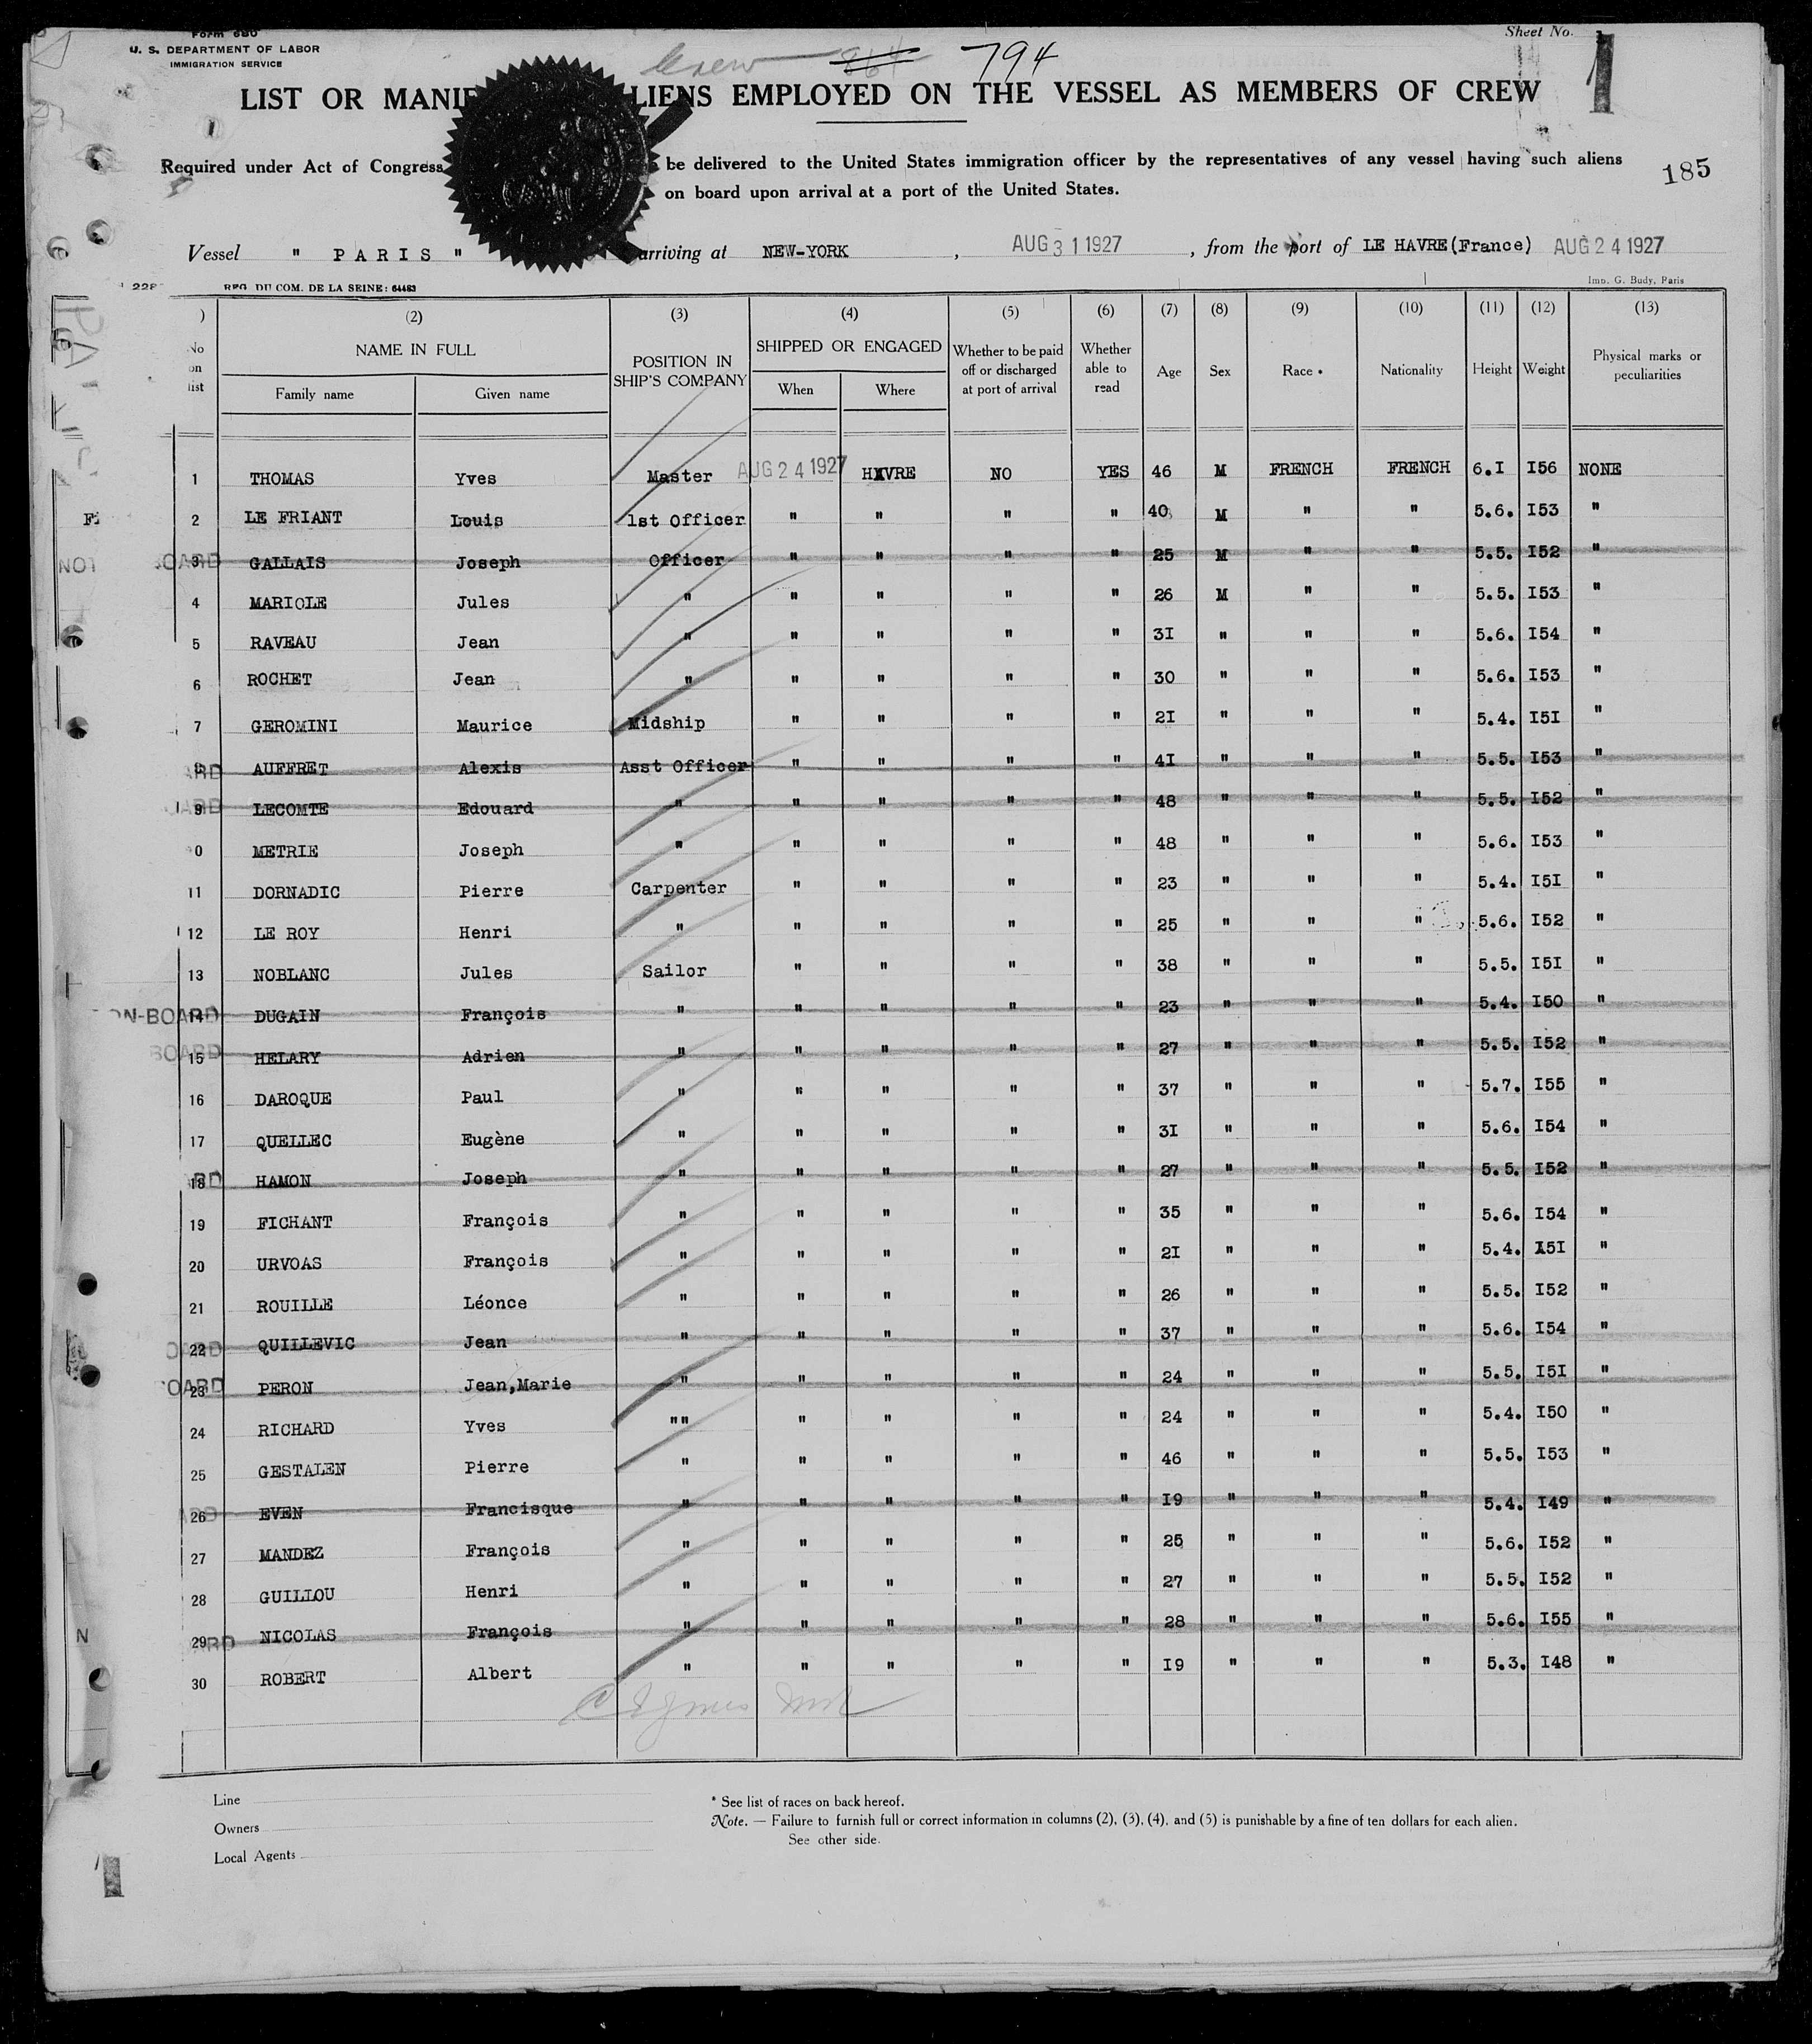 Form 680
U. S. DEPARTMENT OF LABOR
IMMIGRATION SERVICE
Sheet No. 1
Crew 864 794
LIST OR MANIF LIENS EMPLOYED ON THE VESSEL AS MEMBERS OF CREW
Required under Act of Congress be delivered to the United States immigration officer by the representatives of any vessel having such aliens
on board upon arrival at a port of the United States.
185
Vessel " PARIS " arriving at NEW-YORK , AUG 31 1927 , from the port of LE HAVRE(France) AUG 24 1927
REG. DU COM. DE LA SEINE: 64483
Imp. G. Budy, Paris
) (2) (3) (4) (5) (6) (7) (8) (9) (10) (11) (12) (13)
No on list NAME IN FULL Family name Given name POSITION IN SHIP'S COMPANY SHIPPED OR ENGAGED When Where Whether to be paid off or discharged at port of arrival Whether able to read Age Sex Race * Nationality Height Weight Physical marks or peculiarities
1 THOMAS Yves Master AUG 24 1927 HAVRE NO YES 46 M FRENCH FRENCH 6.I I56 NONE
2 LE FRIANT Louis 1st Officer " " " " 40 M " " 5.6. I53 "
3 GALLAIS Joseph Officer " " " " 25 M " " 5.5. I52 "
4 MARIOLE Jules " " " " " 26 M " " 5.5. I53 "
5 RAVEAU Jean " " " " " 3I " " " 5.6. I54 "
6 ROCHET Jean " " " " " 30 " " " 5.6. I53 "
7 GEROMINI Maurice Midship " " " " 2I " " " 5.4. I5I "
8 AUFFRET Alexis Asst Officer " " " " 4I " " " 5.5. I53 "
9 LECOMTE Edouard " " " " " 48 " " " 5.5. I52 "
0 METRIE Joseph " " " " " 48 " " " 5.6. I53 "
11 DORNADIC Pierre Carpenter " " " " 23 " " " 5.4. I5I "
12 LE ROY Henri " " " " " 25 " " " 5.6. I52 "
13 NOBLANC Jules Sailor " " " " 38 " " " 5.5. I5I "
ON-BOARD 14 DUGAIN François " " " " " 23 " " " 5.4. I50 "
BOARD 15 HELARY Adrien " " " " " 27 " " " 5.5. I52 "
16 DAROQUE Paul " " " " " 37 " " " 5.7. I55 "
17 QUELLEC Eugène " " " " " 3I " " " 5.6. I54 "
18 HAMON Joseph " " " " " 27 " " " 5.5. I52 "
19 FICHANT François " " " " " 35 " " " 5.6. I54 "
20 URVOAS François " " " " " 2I " " " 5.4. I5I "
21 ROUILLE Léonce " " " " " 26 " " " 5.5. I52 "
22 QUILLEVIC Jean " " " " " 37 " " " 5.6. I54 "
23 PERON Jean,Marie " " " " " 24 " " " 5.5. I5I "
24 RICHARD Yves "" " " " " 24 " " " 5.4. I50 "
25 GESTALEN Pierre " " " " " 46 " " " 5.5. I53 "
26 EVEN Francisque " " " " " I9 " " " 5.4. I49 "
27 MANDEZ François " " " " " 25 " " " 5.6. I52 "
28 GUILLOU Henri " " " " " 27 " " " 5.5. I52 "
29 NICOLAS François " " " " " 28 " " " 5.6. I55 "
30 ROBERT Albert " " " " " I9 " " " 5.3. I48 "
Line
Owners
Local Agents
* See list of races on back hereof.
Note. — Failure to furnish full or correct information in columns (2), (3), (4), and (5) is punishable by a fine of ten dollars for each alien.
See other side.